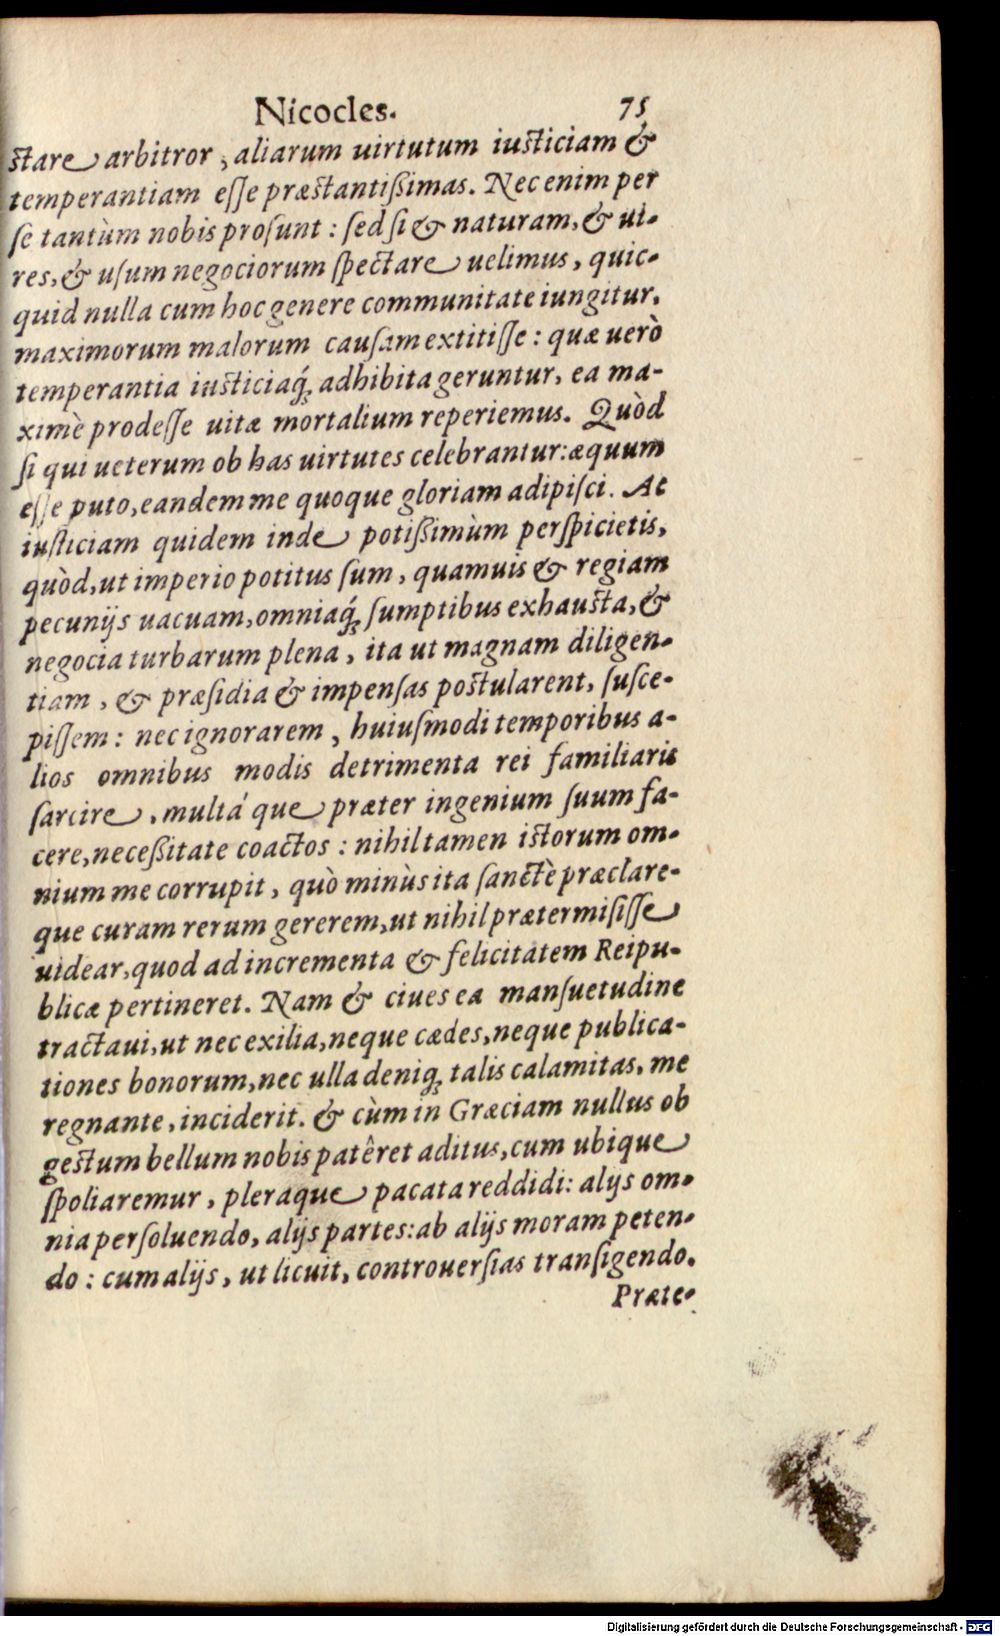 Nicocles. 75
stare arbitror, aliarum uirtutum iusticiam &
temperantiam esse præstantißimas. Nec enim per
se tantùm nobis prosunt: sed si & naturam, & ui-
res, & usum negociorum spectare uelimus, quic-
quid nulla cum hoc genere communitate iungitur,
maximorum malorum causam extitisse: quæ uerò
temperantia iusticiaq́; adhibita geruntur, ea ma-
ximè prodesse uitæ mortalium reperiemus. Quòd
si qui ueterum ob has uirtutes celebrantur: æquum
esse puto, eandem me quoque gloriam adipisci. Ac
iusticiam quidem inde potißimùm perspicietis,
quòd, ut imperio potitus sum, quamuis & regiam
pecunijs uacuam, omniaq́; sumptibus exhausta, &
negocia turbarum plena, ita ut magnam diligen-
tiam, & præsidia & impensas postularent, susce-
pissem: nec ignorarem, huiusmodi temporibus a-
lios omnibus modis detrimenta rei familiaris
sarcire, multá que præter ingenium suum fa-
cere, neceßitate coactos: nihil tamen istorum om-
nium me corrupit, quò minùs ita sanctè præclare-
que curam rerum gererem, ut nihil prætermisisse
uidear, quod ad incrementa & felicitatem Reipu-
blicæ pertineret. Nam & ciues ea mansuetudine
tractaui, ut nec exilia, neque cædes, neque publica-
tiones bonorum, nec ulla deniq; talis calamitas, me
regnante, inciderit. & cùm in Græciam nullus ob
gestum bellum nobis patêret aditus, cum ubique
spoliaremur, pleraque pacata reddidi: alijs om-
nia persoluendo, alijs partes: ab alijs moram peten-
do: cum alijs, ut licuit, controuersias transigendo.
Præte-
Digitalisierung gefördert durch die Deutsche Forschungsgemeinschaft - DFG